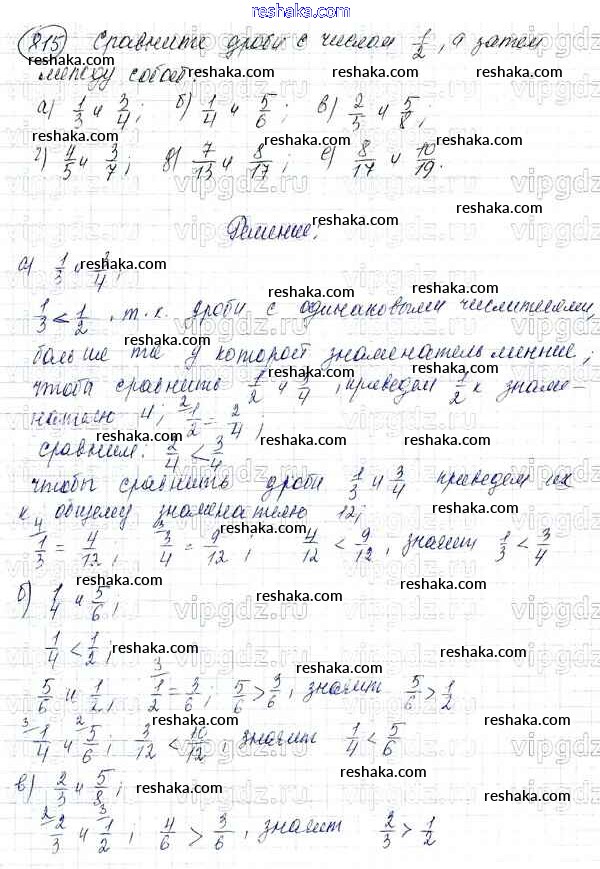 reshaka.com
815) Сравните дроби с числом 1/2, а затем
между собой:
а) 1/3 и 3/4; б) 1/4 и 5/6; в) 2/3 и 5/8;
г) 4/5 и 3/7; д) 7/13 и 8/17; е) 8/17 и 10/19.
Решение:
а) 1/3 и 3/4;
1/3 < 1/2, т.к. дроби с одинаковыми числителями,
больше та у которой знаменатель меньше;
чтоб сравнить 1/2 и 3/4, приведем 1/2 к знаме-
нателю 4; 1/2 = 2/4;
сравним: 2/4 < 3/4
чтобы сравнить дроби 1/3 и 3/4 приведем их
к общему знаменателю 12;
1/3 = 4/12; 3/4 = 9/12; 4/12 < 9/12, значит 1/3 < 3/4
б) 1/4 и 5/6;
1/4 < 1/2;
5/6 и 1/2, 1/2 = 3/6; 5/6 > 3/6, значит 5/6 > 1/2
1/4 и 5/6; 3/12 < 10/12, значит 1/4 < 5/6
в) 2/3 и 5/8;
2/3 и 1/2; 4/6 > 3/6, значит 2/3 > 1/2